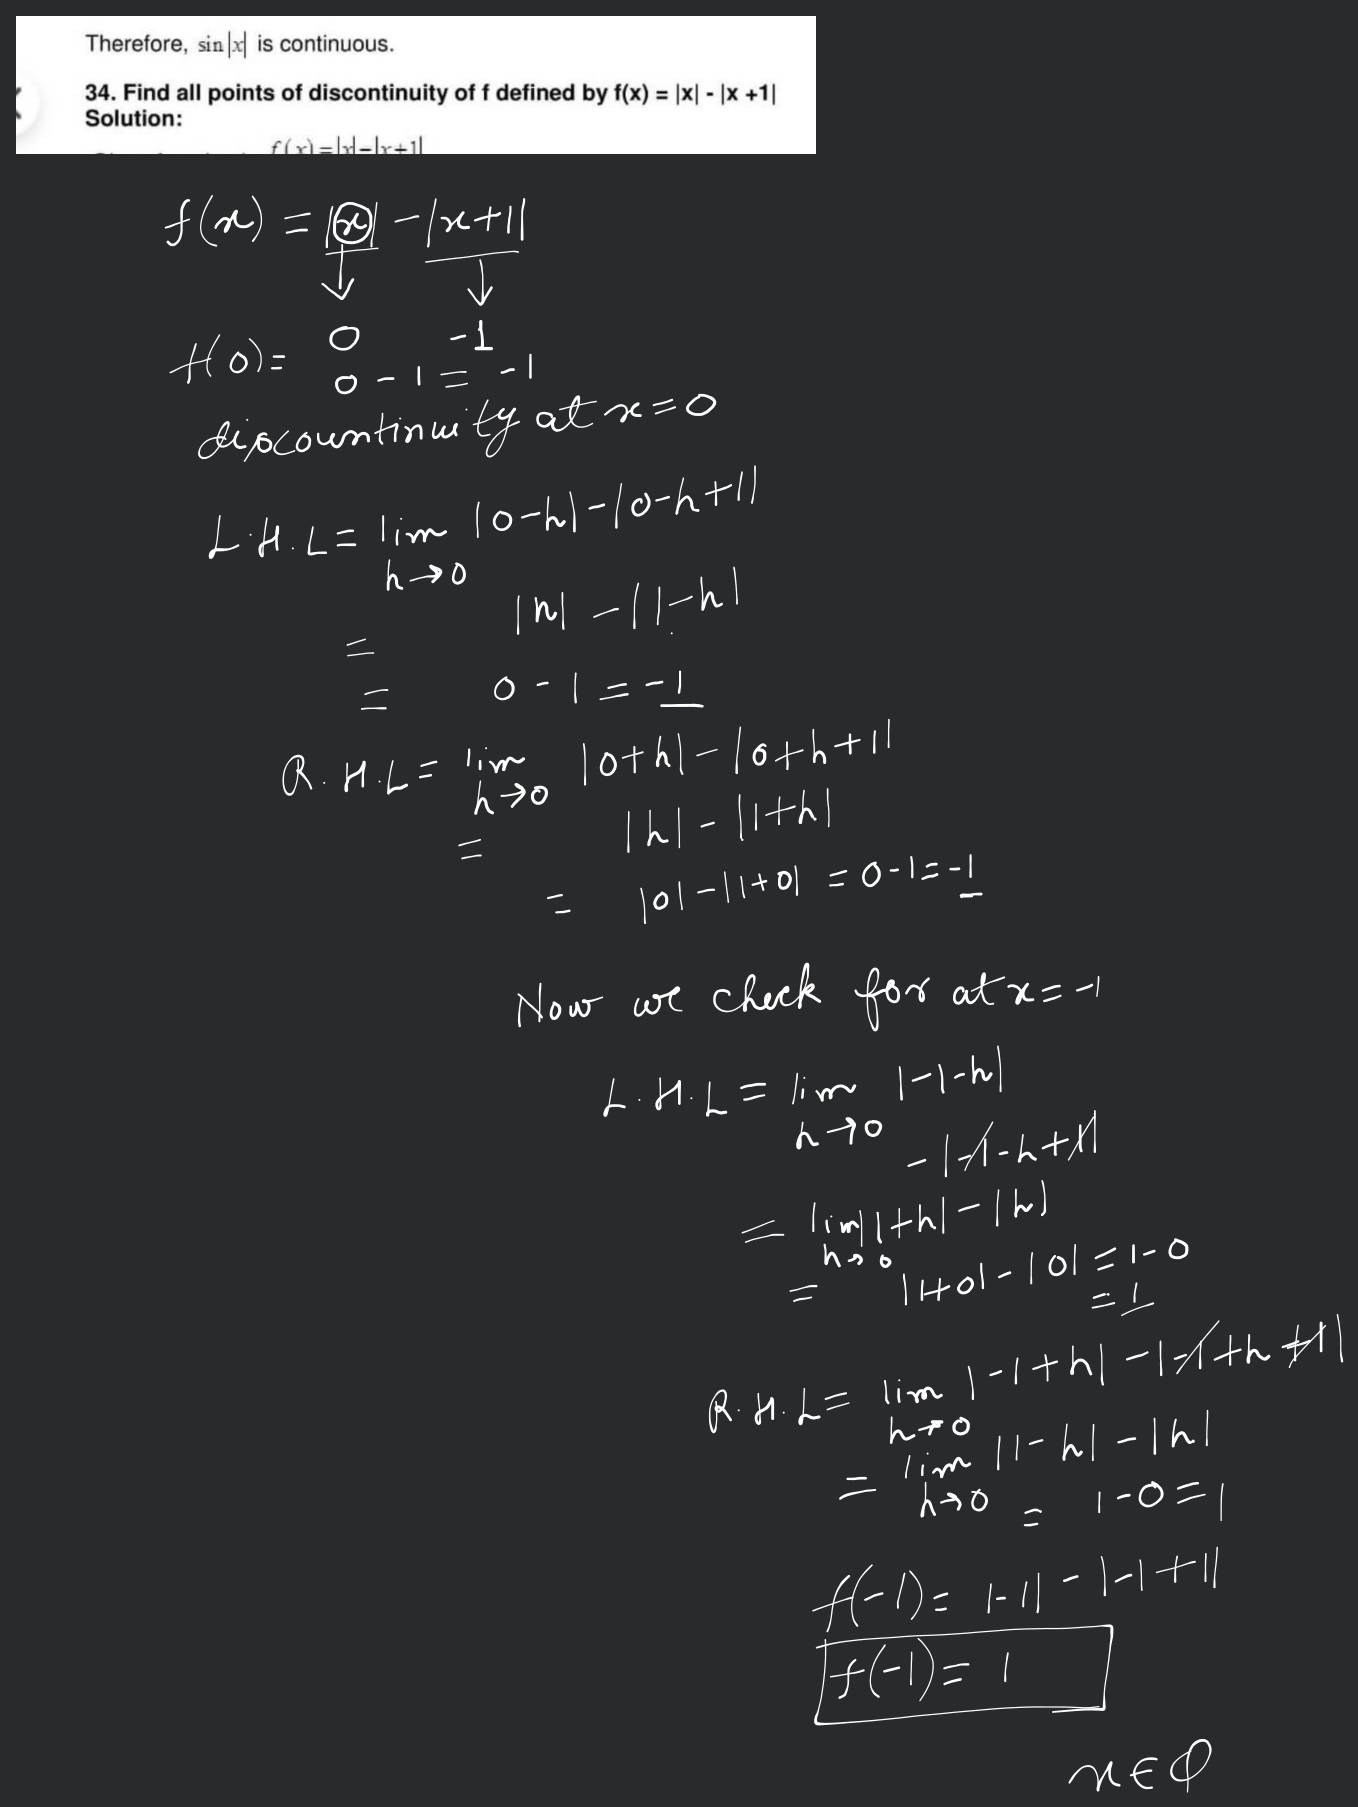 Therefore, sin|x| is continuous.
34. Find all points of discontinuity of f defined by f(x) = |x| - |x +1|
Solution:
f(x)=|x|-|x+1|
f(x) = |x| - |x+1|
0 -1
f(0)= 0 - 1 = -1
discountinuity at x=0
L.H.L = lim |0-h|-|0-h+1|
h→0
= |h| - |1-h|
= 0 - 1 = -1
R.H.L = lim |0+h| - |0+h+1|
h→0
= |h| - |1+h|
= |0| - |1+0| = 0-1 = -1
Now we check for at x = -1
L.H.L = lim |-1-h|
h→0
- |-1-h+1|
= lim |1+h| - |h|
h→0
= |1+0| - |0| = 1-0
= 1
R.H.L = lim |-1+h| - |-1+h+1|
h→0
= lim |1-h| - |h|
h→0
= 1-0 = 1
f(-1) = |-1| - |-1+1|
f(-1) = 1
x ∈ φ